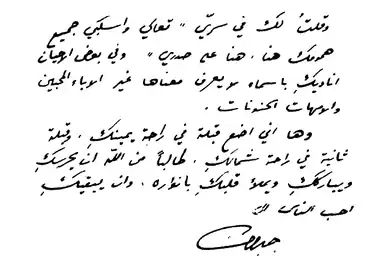 وقلتُ لكِ في سرّي " تعالي واسكبي جميع
همومك هنا ، هنا على صدري " وفي بعض الاحيان
اناديكِ باسماء لا يعرف معناها غير الاباء المحبين
والامهات الحنونات .
وها اني اضع قبلة في راحة يمينكِ ، وقبلة
ثانية في راحة شمالكِ ، طالباً من الله ان يحرسكِ
ويبارككِ ويملاء قلبكِ بانواره ، وان يبقيكِ
احب الناس الى
جبران